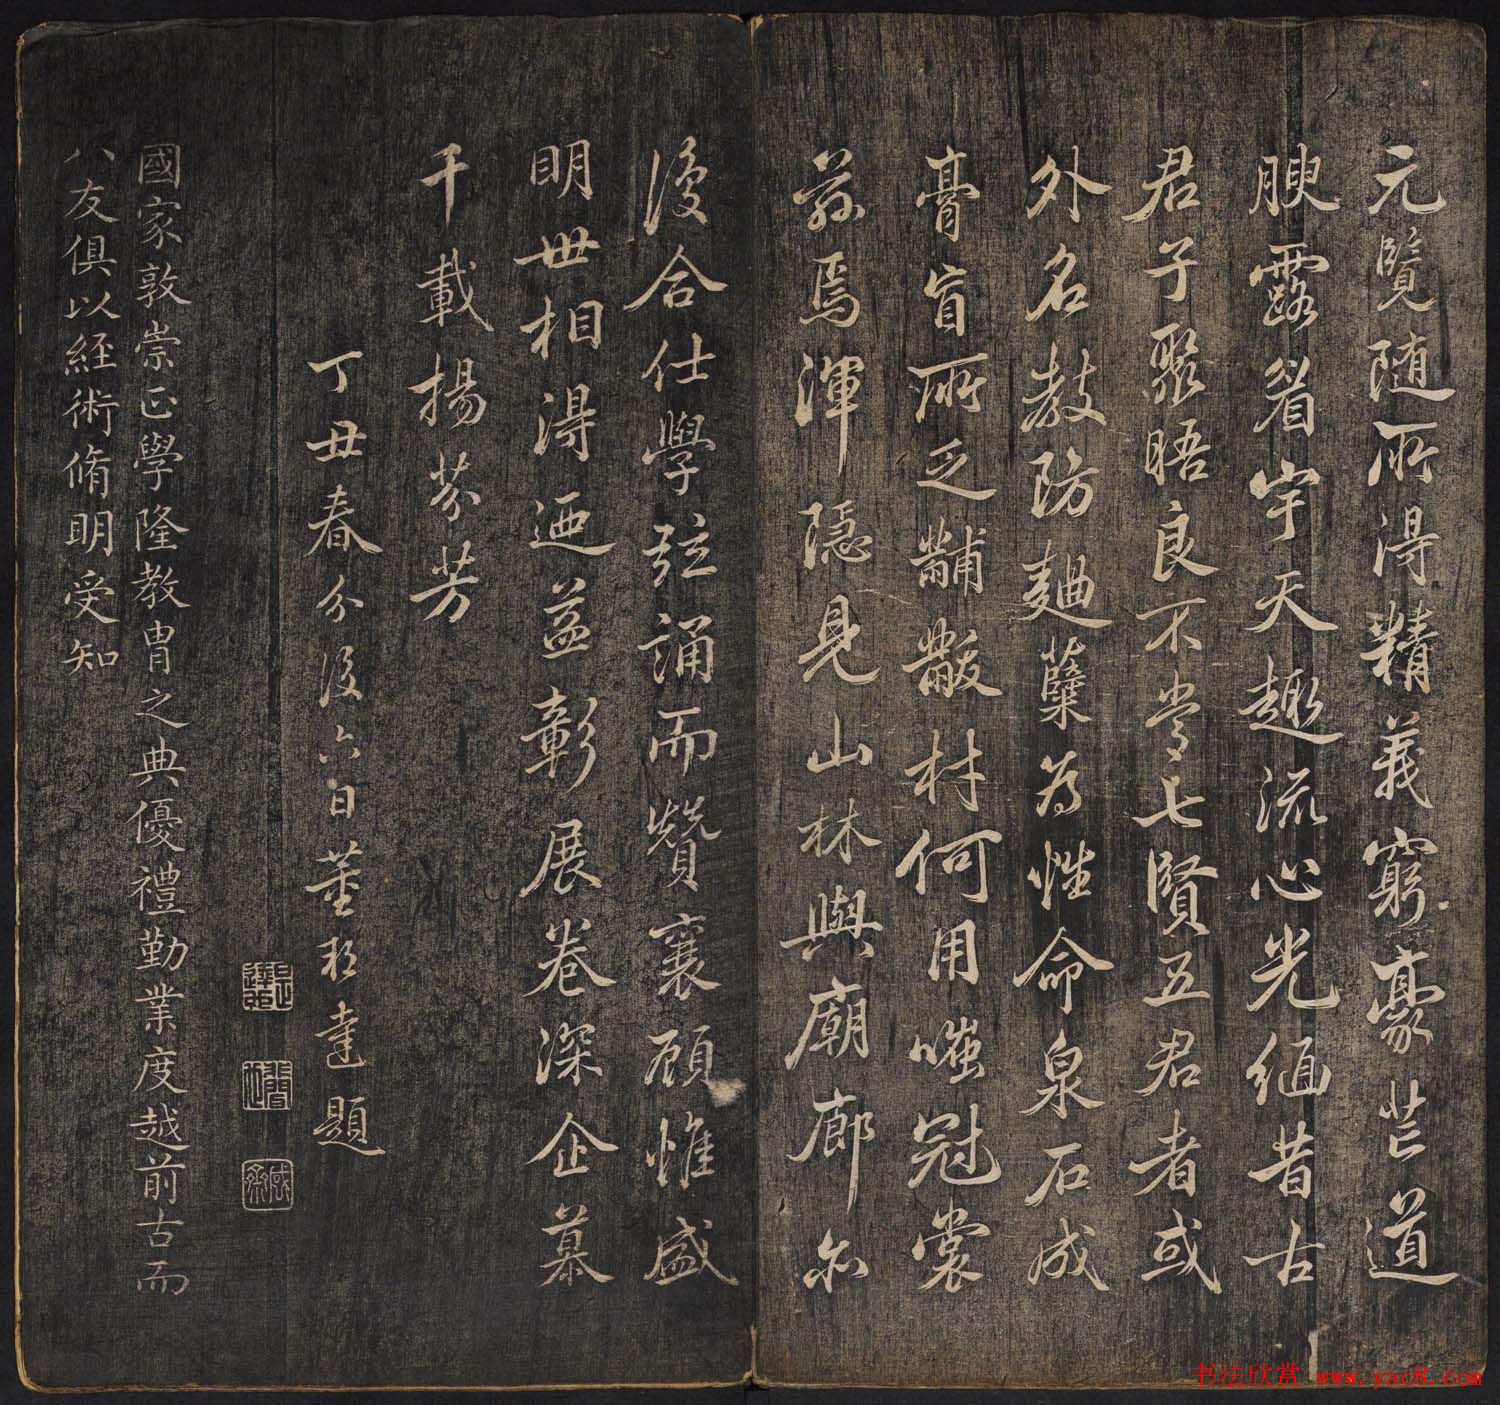 元覽随所得精義窮豪芒道
腴露眉宇天趣流心光緬昔古
君子聚晤良不常七賢五君者或
外名教防麯蘖為性命泉石成
膏肓所乏黼黻材何用嗤冠裳
焉渾隱見山林與廟廊尔
後合仕學弦誦而贊襄顧惟盛
明世相得迺益彰展卷深企慕
千載揚芬芳
丁丑春分後六日董邦達題
國家敦崇正學隆教胄之典優禮勤業度越前古而
八友俱以經術脩明受知
书法欣赏 www.yac8.com